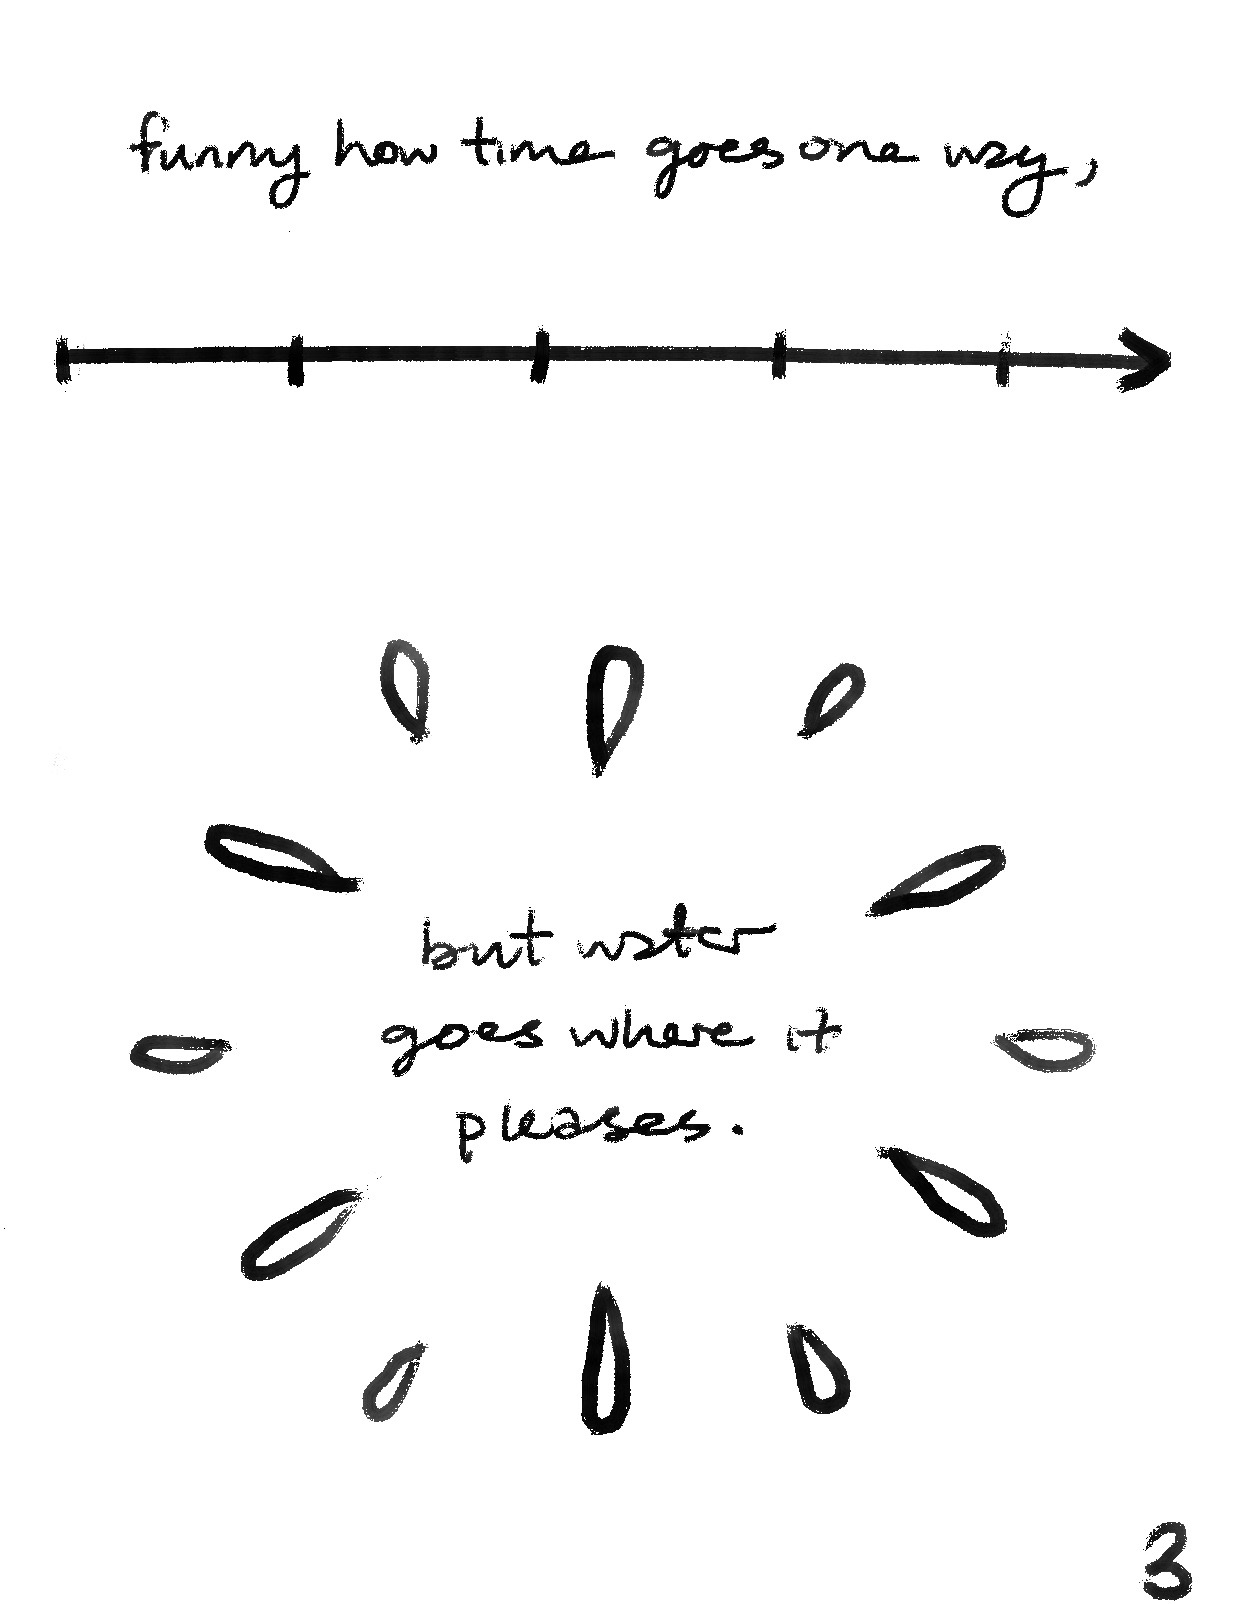 funny how time goes one way,
but water
goes where it
pleases.
3